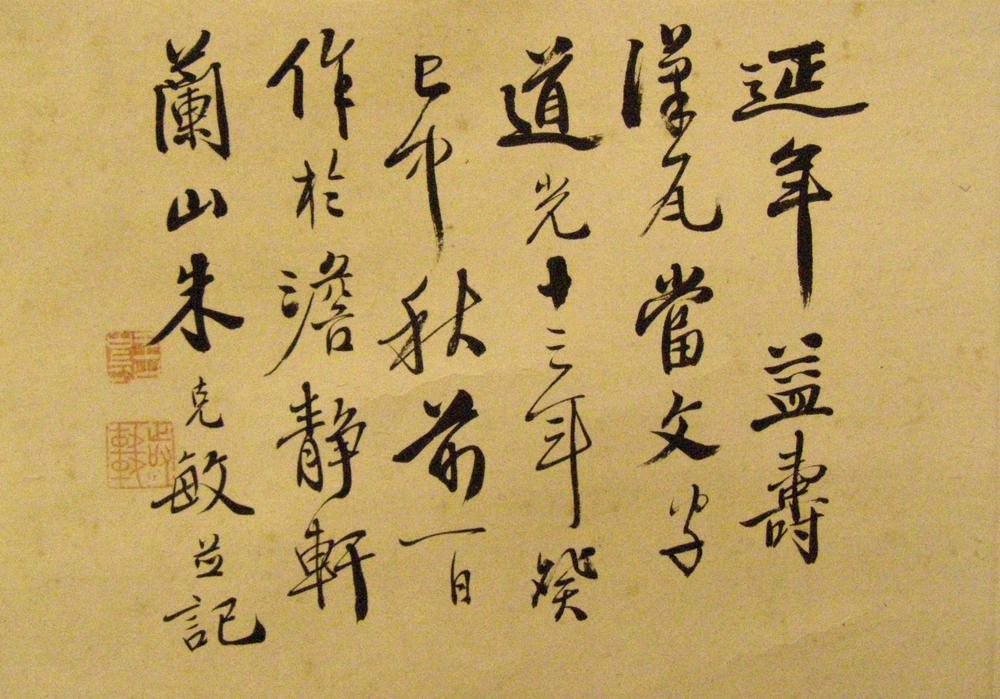 延年益壽
漢瓦當文字
道光十三年癸
巳中秋前一日
作於澹静軒
蘭山朱克敏並記